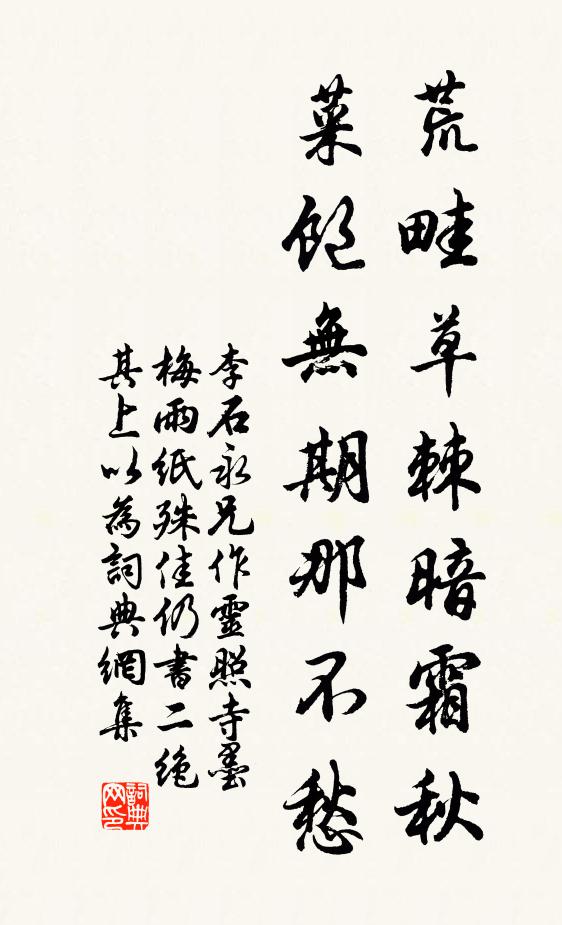 荒畦草棘暗霜秋
菜飽無期那不愁
李石永兄作靈照寺墨
梅雨紙殊佳仍書二絶
其上以為詞典網集
詞典网印